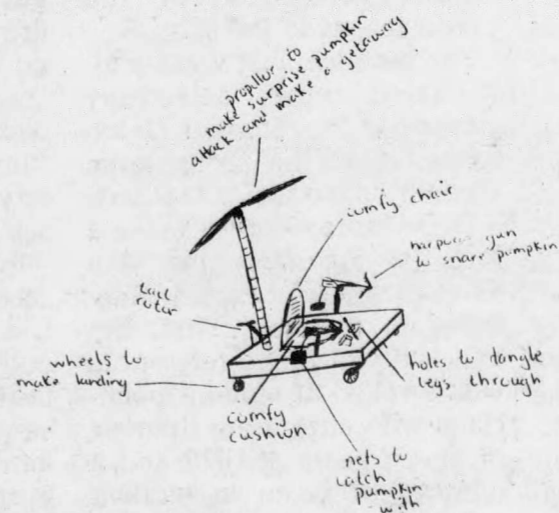 propellor to
make surprise pumpkin
attack and make a getaway
comfy chair
harpoon gun
to snare pumpkin
tail
rotor
wheels to
make landing
holes to dangle
legs through
comfy
cushion
nets to
catch
pumpkin
with